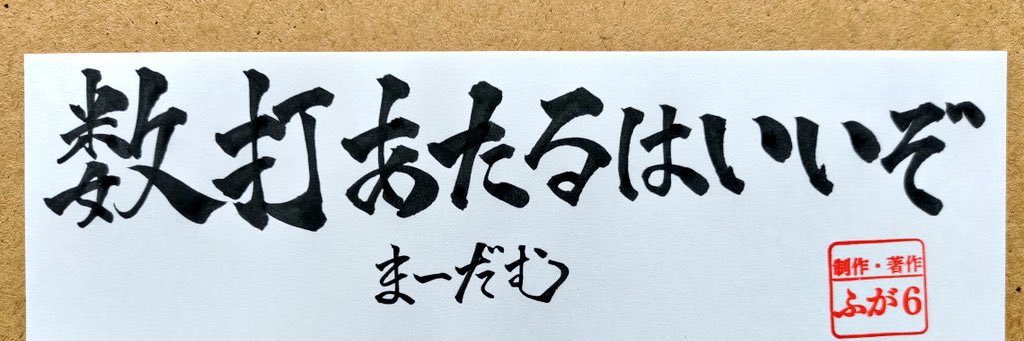 数打あたるはいいぞ
まーだむ
制作・著作
ふが6